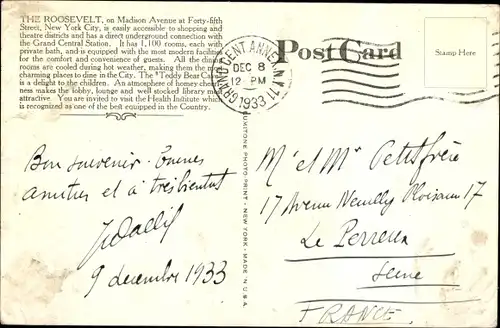 THE ROOSEVELT, on Madison Avenue at Forty-fifth
Street, New York City, is easily accessible to shopping and
theatre districts and has a direct underground connection with
the Grand Central Station. It has 1,100 rooms, each with
private bath, and is equipped with the most modern facilities
for the comfort and convenience of guests. All the dining
rooms are cooled during hot weather, making them the most
charming places to dine in the City. The "Teddy Bear Cave"
is a delight to the children. An atmosphere of homey cheeriness
makes the lobby, lounge and well stocked library most
attractive. You are invited to visit the Health Institute which
is recognized as one of the best equipped in the Country.
Post Card
Stamp Here
GRAND CENT. ANNEX N.Y.
DEC 8
12 PM
1933
11
PHOTO PRINT - NEW YORK - MADE IN U.S.A.
Bon souvenir. Bonnes
amitiés et à très bientôt
9 décembre 1933
M. et Me Petitfrère
17 Avenue Neuilly Plaisance 17
Le Perreux
Seine
FRANCE